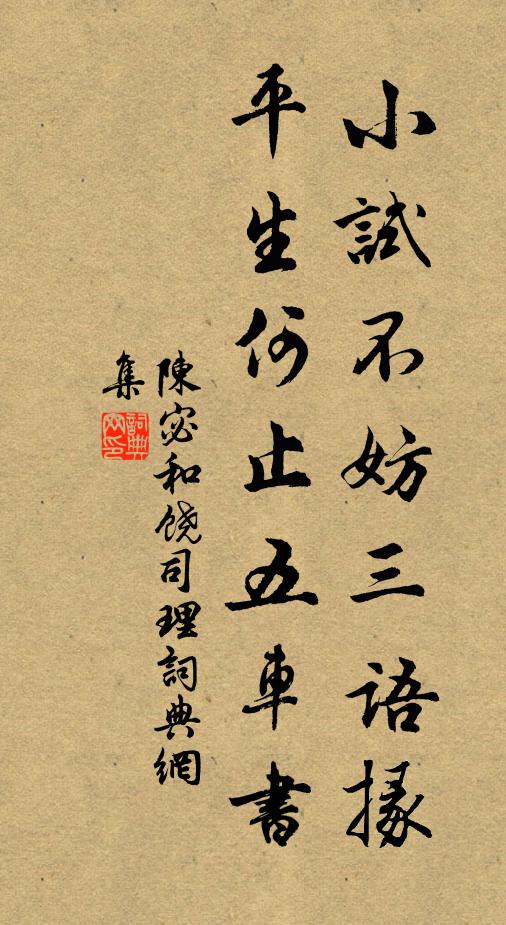 小試不妨三語掾
平生何止五車書
陳宓和饒司理詞典網
集
詞典
网印